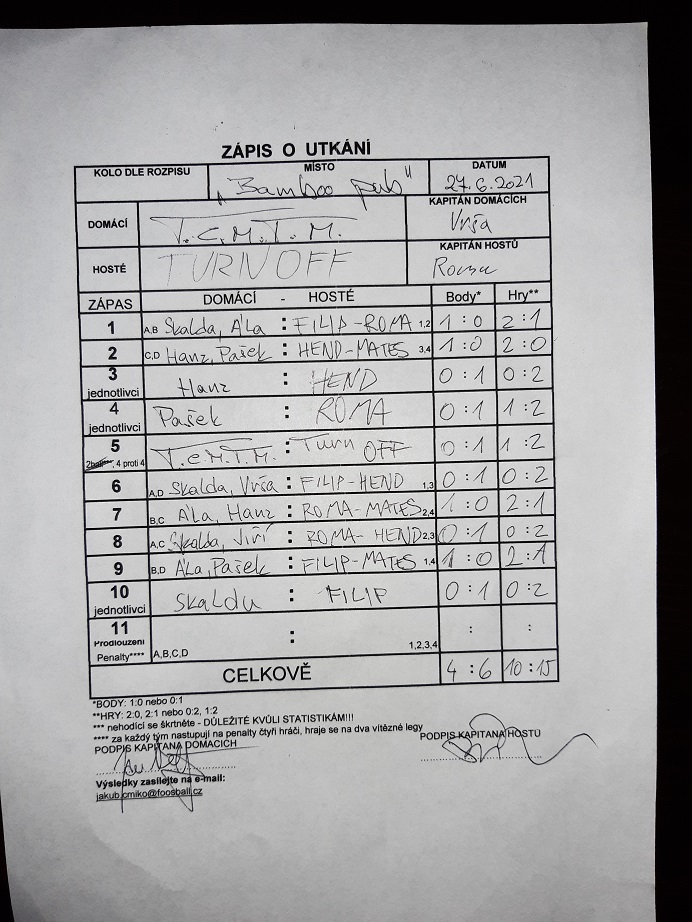 ZÁPIS O UTKÁNÍ
KOLO DLE ROZPISU MÍSTO DATUM
„Bamboo pub" 27.6.2021
DOMÁCÍ T.C.M.T.M. KAPITÁN DOMÁCÍCH
Vrša
HOSTÉ TURN OFF KAPITÁN HOSTŮ
ZÁPAS DOMÁCÍ - HOSTÉ Body* Hry**
1 A,B Skalda, Ála : FILIP-ROMA 1,2 1:0 2:1
2 C,D Hanz, Pašek : HEND-MATES 3,4 1:0 2:0
3 jednotlivci Hanz : HEND 0:1 0:2
4 jednotlivci Pašek : ROMA 0:1 1:2
5 2ball***, 4 proti 4 T.C.M.T.M. : Turn OFF 0:1 1:2
6 A,D Skalda, Vrša : FILIP-HEND 1,3 0:1 0:2
7 B,C Ála, Hanz : ROMA-MATES 2,4 1:0 2:1
8 A,C Skalda, Jiří : ROMA-HEND 2,3 0:1 0:2
9 B,D Ála, Pašek : FILIP-MATES 1,4 1:0 2:1
10 jednotlivci Skalda : FILIP 0:1 0:2
11 Prodloužení Penalty**** A,B,C,D : 1,2,3,4 : :
CELKOVĚ 4:6 10:15
*BODY: 1:0 nebo 0:1
**HRY: 2:0, 2:1 nebo 0:2, 1:2
*** nehodící se škrtněte - DŮLEŽITÉ KVŮLI STATISTIKÁM!!!
**** za každý tým nastupují na penalty čtyři hráči, hraje se na dva vítězné legy
PODPIS KAPITÁNA DOMÁCÍCH PODPIS KAPITÁNA HOSTŮ
Výsledky zasílejte na e-mail:
jakub.cmiko@foosball.cz